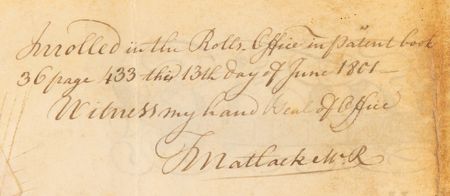 Inrolled in the Rolls Office in patent book
36 page 433 this 13th day of June 1801 —
Witness my hand Seal of Office
T Matlack M.R